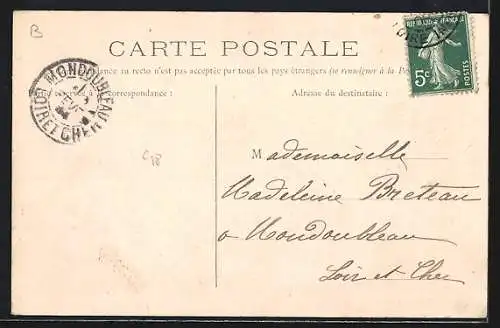 B
CARTE POSTALE
RÉPUBLIQUE FRANÇAISE
5c
POSTES
MONDOUBLEAU
LOIR ET CHER
recto n'est pas acceptée par tous les pays étrangers (se renseigner à la
correspondance :
Adresse du destinataire :
Mademoiselle
Madeleine Breteau
à Mondoubleau
Loir et Cher